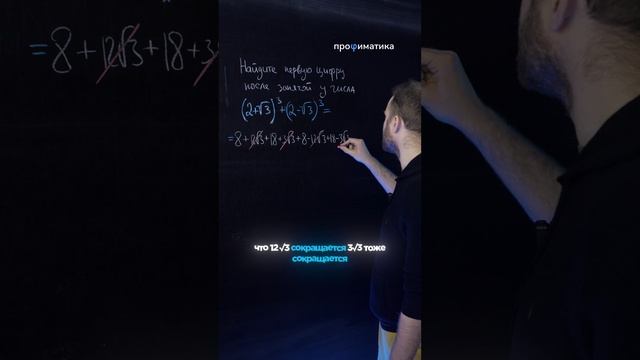 профиматика
= 8 + 12√3 + 18 + 3
Найдите первую цифру
после запятой у числа
(2+√3)³+(2-√3)³=
=8+12√3+18+3√3+8-12√3+18-3√3
что 12√3 сокращается 3√3 тоже
сокращается